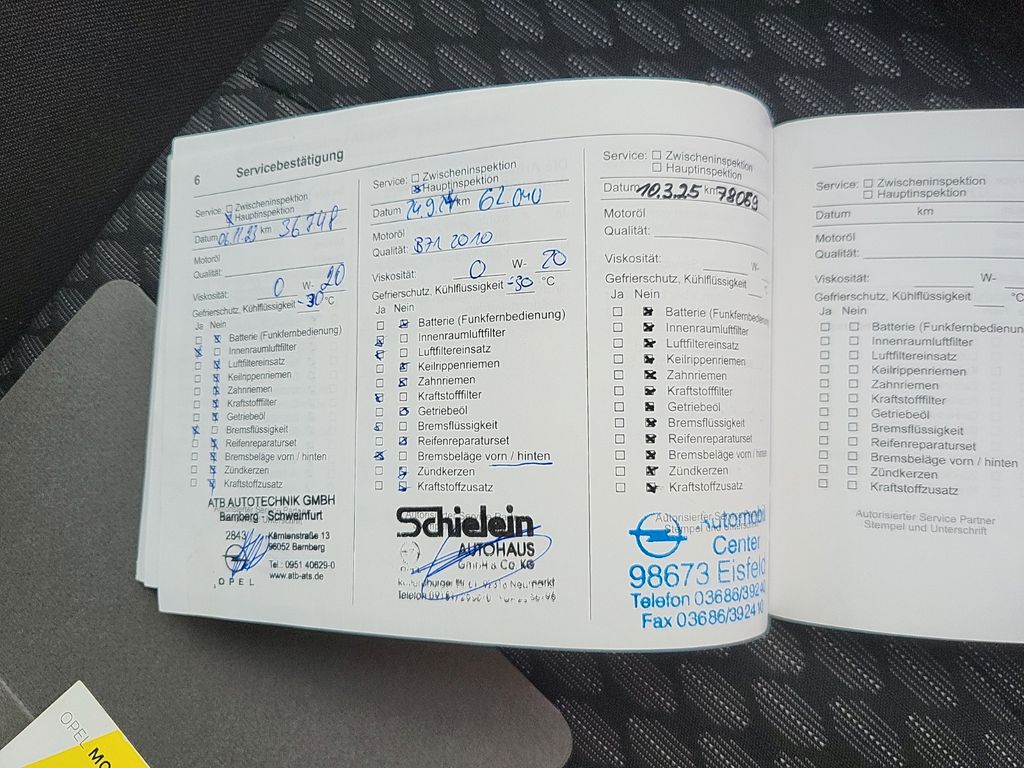 6 Servicebestätigung
Service: Zwischeninspektion
Hauptinspektion
Datum 06.11.23 km 36748
Motoröl
Qualität:
Viskosität: 0 W- 20
Gefrierschutz, Kühlflüssigkeit -30 °C
Ja Nein
Batterie (Funkfernbedienung)
Innenraumluftfilter
Luftfiltereinsatz
Keilrippenriemen
Zahnriemen
Kraftstofffilter
Getriebeöl
Bremsflüssigkeit
Reifenreparaturset
Bremsbeläge vorn / hinten
Zündkerzen
Kraftstoffzusatz
ATB AUTOTECHNIK GMBH
Bamberg - Schweinfurt
2843 Kärntenstraße 13
96052 Bamberg
Tel.: 0951 40629-0
www.atb-ats.de
OPEL
Service: Zwischeninspektion
Hauptinspektion
Datum 24.9.24 km 62.040
Motoröl
Qualität: B71 2010
Viskosität: 0 W- 20
Gefrierschutz, Kühlflüssigkeit -30 °C
Ja Nein
Batterie (Funkfernbedienung)
Innenraumluftfilter
Luftfiltereinsatz
Keilrippenriemen
Zahnriemen
Kraftstofffilter
Getriebeöl
Bremsflüssigkeit
Reifenreparaturset
Bremsbeläge vorn / hinten
Zündkerzen
Kraftstoffzusatz
Schielein
AUTOHAUS
GmbH & Co. KG
Service: Zwischeninspektion
Hauptinspektion
Datum 10.3.25 km 78069
Motoröl
Qualität:
Viskosität: W-
Gefrierschutz, Kühlflüssigkeit °C
Ja Nein
Batterie (Funkfernbedienung)
Innenraumluftfilter
Luftfiltereinsatz
Keilrippenriemen
Zahnriemen
Kraftstofffilter
Getriebeöl
Bremsflüssigkeit
Reifenreparaturset
Bremsbeläge vorn / hinten
Zündkerzen
Kraftstoffzusatz
Autorisierter Se
Stempel und
Automobil
Center
98673 Eisfeld
Telefon 03686/39240
Fax 03686/392410
Service: Zwischeninspektion
Hauptinspektion
Datum km
Motoröl
Qualität:
Viskosität: W-
Gefrierschutz, Kühlflüssigkeit °C
Ja Nein
Batterie (Funkfernbedienun
Innenraumluftfilter
Luftfiltereinsatz
Keilrippenriemen
Zahnriemen
Kraftstofffilter
Getriebeöl
Bremsflüssigkeit
Reifenreparaturset
Bremsbeläge vorn / hinten
Zündkerzen
Kraftstoffzusatz
Autorisierter Service Partner
Stempel und Unterschrift
OPEL